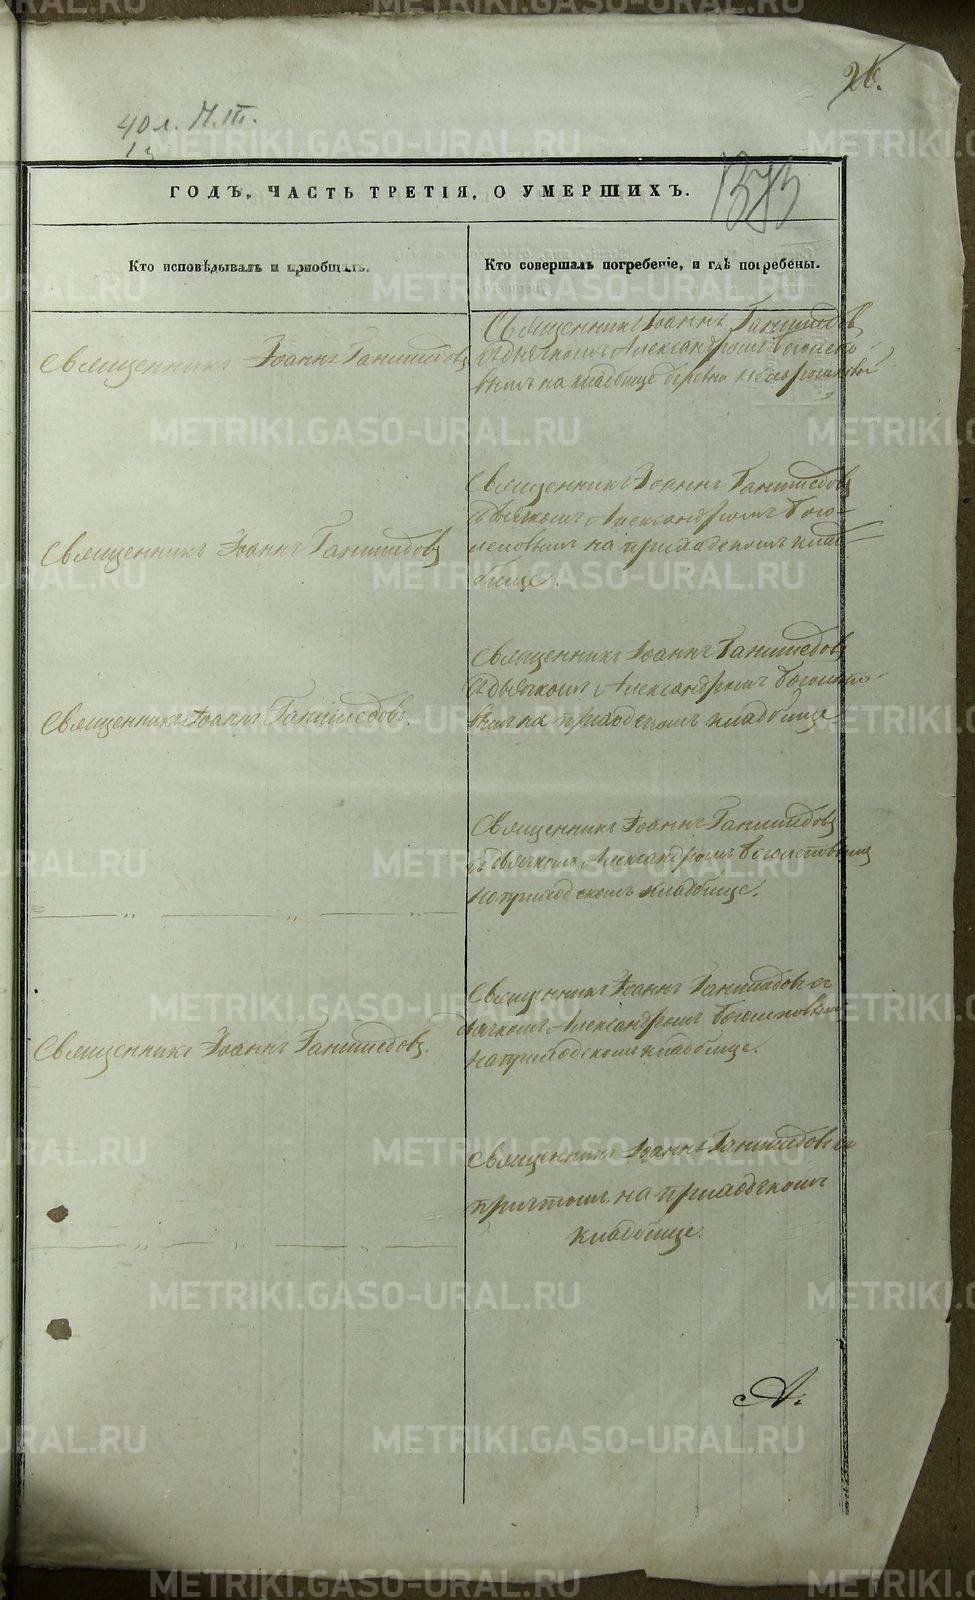 26.
40 л. М. III.
13
1373
ГОДЪ, ЧАСТЬ ТРЕТІЯ, О УМЕРШИХЪ.
Кто исповѣдывалъ и пріобщалъ.
Кто совершалъ погребеніе, и гдѣ погребены.
Священникъ Іоаннъ Ганишедовъ
Священникъ Іоаннъ Ганишедовъ
съ дьячкомъ Александромъ Боголепо-
вымъ на кладбище деревни
Священникъ Іоаннъ Ганишедовъ
Священникъ Іоаннъ Ганишедовъ
съ дьячкомъ Александромъ Бого-
леповымъ на приходскомъ клад-
бище.
Священникъ Іоаннъ Ганишедовъ.
Священникъ Іоаннъ Ганишедовъ
съ дьячкомъ Александромъ Боголепо-
вымъ на приходскомъ кладбище
— „ — „ — „ —
Священникъ Іоаннъ Ганишедовъ
съ дьячкомъ Александромъ Боголеповымъ
на приходскомъ кладбище.
Священникъ Іоаннъ Ганишедовъ.
Священникъ Іоаннъ Ганишедовъ съ
дьячкомъ Александромъ Боголеповымъ
на приходскомъ кладбище.
— „ — „ — „ —
Священникъ Іоаннъ Ганишедовъ съ
причтомъ на приходскомъ
кладбище.
А.
METRIKI.GASO-URAL.RU